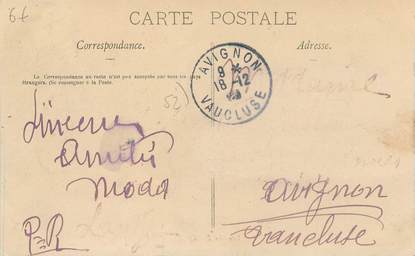 6f
CARTE POSTALE
Correspondance.
Adresse.
La Correspondance au recto n'est pas acceptée par tous les pays
étrangers. (Se renseigner à la Poste.)
AVIGNON
8 *
18-12
VAUCLUSE
52
Sincères
Amitiés
P.R
Avignon
Vaucluse